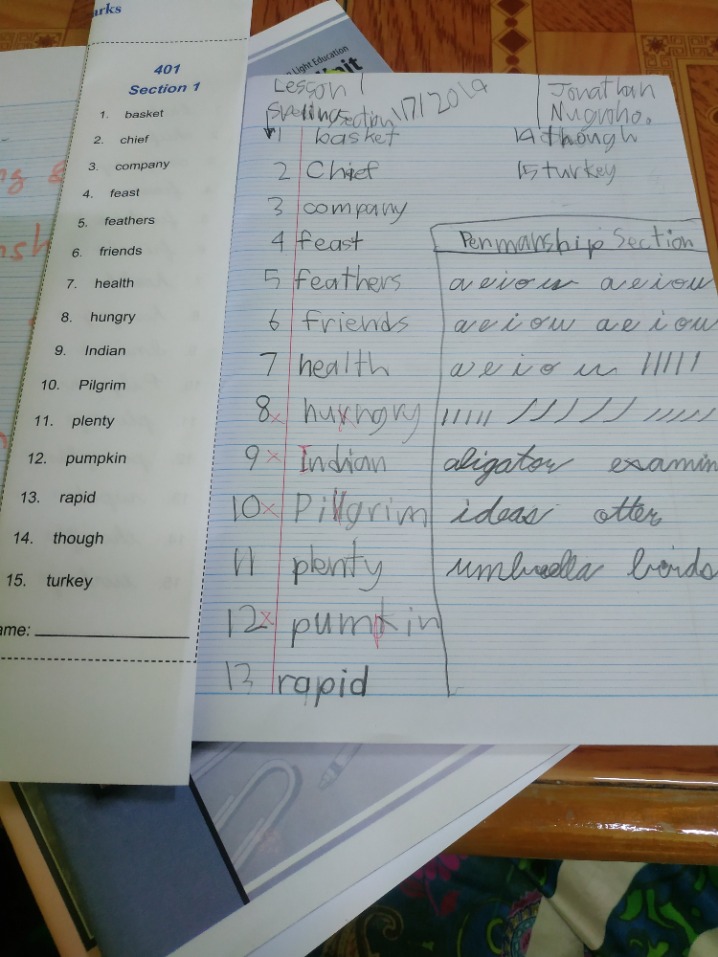 arks
401
Section 1
1. basket
2. chief
3. company
4. feast
5. feathers
6. friends
7. health
8. hungry
9. Indian
10. Pilgrim
11. plenty
12. pumpkin
13. rapid
14. though
15. turkey
ame:
Light Education
Lesson 1
Spelling Section 1/7/2019
Jonathan
Nugroho.
1 basket
2 Chief
3 company
4 feast
5 feathers
6 friends
7 health
8 hungry
9 Indian
10 Pillgrim
11 plenty
12 pumkin
13 rapid
14 though
15 turkey
Penmanship Section
a e i o u a e i o u
a e i o u a e i o u
a e i o u
aligator examin
ideas otter
umbrella birds